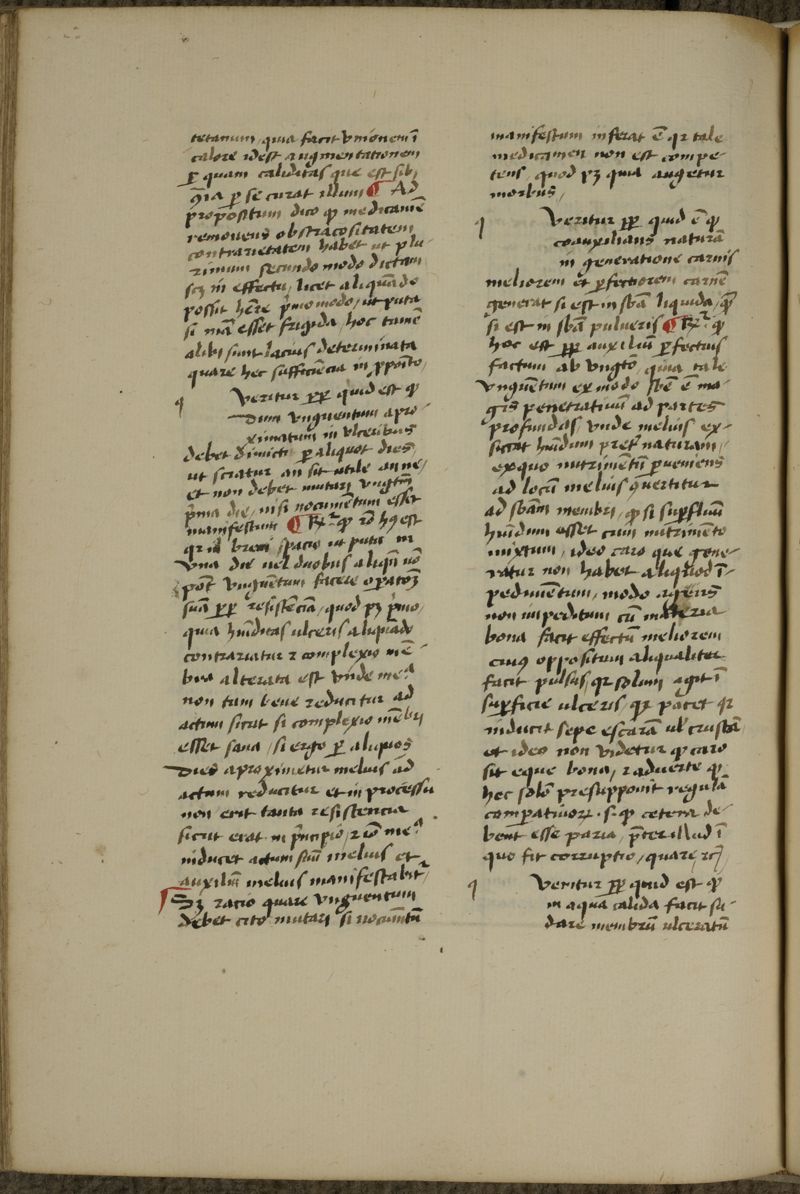 tetanum, quia facit vnionem ī
calore idest augmentationem
ꝑ quam caliditas que est sibi
ꝯ̄ia ꝑ se curat illum ¶ Ad
propositum dico ꝙ medicamē
remouens obstracositatem
contrarietatem habet ut plu
rimum secundo modo dictam
scꝫ in effectu, licet aliquādo
possit hēre p̄mo modo, ut puta
si mā esset frigida, hoc tamē
alibi sunt lacius determinata
quare hec sufficiēcia in ꝓpōito,
q Veritur ꝓpꝑ quid est ꝙ
dum vnguentum apro-
ximatum in vlceribus
debet dimicti ꝑ aliquot dies
ut sciatur an sit utile an ne,
et non debet mutari vngtm̄
p̄ma die, nisi nocumētum esset
manifestum ¶ R̄ ꝙ rō hꝰ est
qꝛ in breui spacio ut puta in
vna die uel duobus aliqn̄ nō
pōt vnguentum facere oꝑatōꝫ
suā ꝓpꝑ resistēciā, quod pꝫ p̄mo,
quia hūiditas ulceris aliquādo
contrariatur ⁊ complexio mē-
bri alterata est vnde meᵃ
non tam bene reducitur ad
actum sicut si complexio mēbri
esset sana, si ergo ꝑ aliquos
dies aproximetur melius ad
actum reducitur et in processu
non erit tanta resistencia
sicut erat in p̄ncipio, ⁊ iō meᵃ
inducet actum suū melius et
auxiliū melius manifestabit,
¶ Sꝫ racio quare vnguentum
debet cito mutari si nocumētū
manifestum inferat ē qꝛ tale
medicamen non est compe-
tens, quod pꝫ quia augetur
morbus,
q Veritur ꝓpꝑ quid ē ꝙ
coauxilians naturā
in generatione carnis
meliorem et ꝑfectiorem carnē
generat si est in sbā liquida, ꝙ̄
si est in sbā pulueris ¶ R̄ ꝙ
hoc est ꝓpꝑ auxiliū ꝑfectius
factum ab vngto, quia tale
vnguētum ex modo sbē ē ma-
gis penetratiuū ad partes
profundas, vnde melius ex-
siccat hūidum preter naturam,
ex quo nutrimētū ꝑueniens
ad locū melius ꝯuertitur
ad sbām membri, ꝙ si suꝑfluū
hūidum esset cum nutrimēto
mixtum, ideo caro que gene-
ratur non habet aliquod ī-
pedimētum, modo agens
non impeditum cū materia
bona facit effectū meliorem
cuius oppositum aliqualiter
facit puluis, qꝛ solum agit ī
suꝑficie ulceris qꝛ patet qꝛ
inducit sepe escarā ul' crustā
et ideo non videtur ꝙ caro
sit eque bona, ⁊ aduerte ꝙ
hec solō presupponit regulā
comparatiuorꝫ .s. ꝙ cetera de-
bent esse paria, preter illud ī
quo fit corruptio, quare ⁊cꝫ
q Veritur ꝓpꝑ quid est ꝙ
in aqua calida facit su-
dare membrū ulceratū